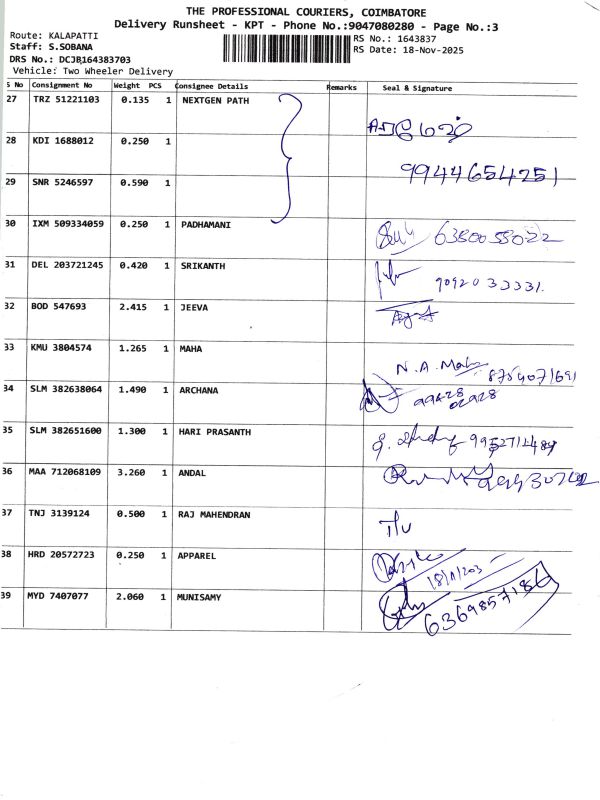 THE PROFESSIONAL COURIERS, COIMBATORE
Delivery Runsheet - KPT - Phone No.:9047080280 - Page No.:3
Route: KALAPATTI
RS No.: 1643837
Staff: S.SOBANA
RS Date: 18-Nov-2025
DRS No.: DCJB164383703
Vehicle: Two Wheeler Delivery
S No Consignment No Weight PCS Consignee Details Remarks Seal & Signature
27 TRZ 51221103 0.135 1 NEXTGEN PATH
28 KDI 1688012 0.250 1
9944654251
29 SNR 5246597 0.590 1
30 IXM 509334059 0.250 1 PADHAMANI
31 DEL 203721245 0.420 1 SRIKANTH 9092033331
32 BOD 547693 2.415 1 JEEVA
33 KMU 3804574 1.265 1 MAHA N.A. Maha
34 SLM 382638064 1.490 1 ARCHANA 99428 02928
35 SLM 382651600 1.300 1 HARI PRASANTH
36 MAA 712068109 3.260 1 ANDAL
37 TNJ 3139124 0.500 1 RAJ MAHENDRAN
38 HRD 20572723 0.250 1 APPAREL
39 MYD 7407077 2.060 1 MUNISAMY 6369857186